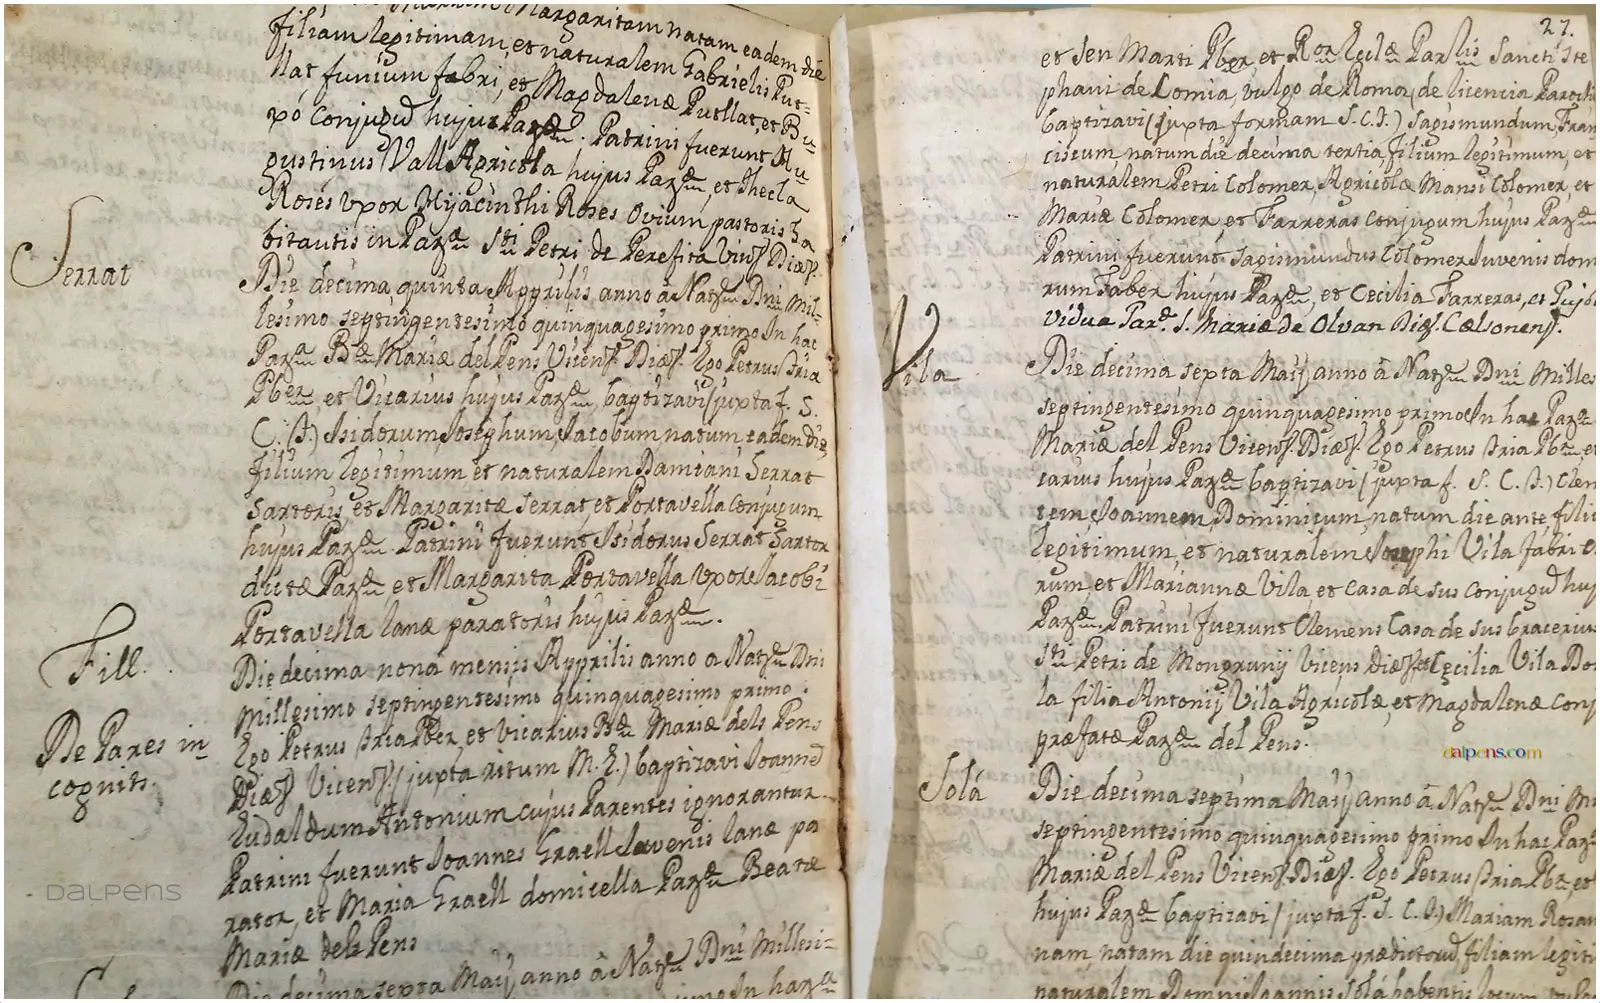 Margaritam natam eadem die
filiam legitimam, et naturalem Gabrielis Put=
llat, funium fabri, et Magdalenæ Putllat, et Bu
xó Conjugũ hujus Paræ. Patrini fuerunt Au
gustinus Vall Agricola hujus Paræ, et Thecla
Roses uxor Hyacinthi Roses ovium pastoris ha
bitantis in Para Sti Petri de Perafita Vics Diæs.
Serrat
Die decima quinta Apprilis anno â Nate Dni Mil=
lesimo septingentesimo quinquagesimo primo In hac
Para Be Mariæ del Pens Vicens Diæs. Ego Petrus Tria
Pber, et Vicarius hujus Paræ, baptizavi (juxta f. S.
C. T.) Isidorum, Josephum, Jacobum natum eadem die,
filium legitimum et naturalem Damiani Serrat
Sartoris, et Margaritæ Serrat et Portavella conjugum
hujus Paræ. Patrini fuerunt Isidorus Serrat Sartor
dictæ Paræ et Margarita Portavella uxor Jacobi
Portavella lanæ paratoris hujus Paræ.
Fill.
De Pares in
cognits.
Die decima nona mensis Apprilis anno a Nate Dni
Millesimo septingentesimo quinquagesimo primo:
Ego Petrus Tria Pber, et vicarius Be Mariæ dels Pens
Diæs Vicens (juxta ritum M. E.) baptizavi Joannẽ
Eudaldum Antonium cujus Parentes ignorantur.
Patrini fuerunt Joannes Graell Juvenis lanæ pa
rator, et Maria Graell domicella Paræ Beatæ
Mariæ dels Pens
Die decima sexta Maij anno â Nate Dni Millesi=
27.
et Sen Marti Pber, et Ror Eclæ Parlis Sancti Ste
phani de Comia, vulgo de Roma, de licencia Parochi
baptizavi (juxta formam S. C. T.) Sagismundum Fran
ciscum natum die decima tertia, filium legitimum, et
naturalem Petri Colomer, Agricolæ Mansi Colomer, et
Mariæ Colomer et Farreras conjugum hujus Paræ
Patrini fuerunt Sagismundus Colomer Juvenis dom
rum Faber hujus Paræ, et Cecilia Farreras, et Pujol
vidua Parę. S. Mariæ de Olvan Diæs. Cælsonens.
Vila
Die decima sexta Maij anno â Nate Dni Milles
septingentesimo quinquagesimo primo In hac Para
Mariæ del Pens Vicens. Diæs. Ego Petrus Tria Pbr, et
carius hujus Paræ baptizavi (juxta f. S. C. T.) Clem
tem, Joannem, Dominicum, natum die ante, filiu
legitimum, et naturalem Josephi Vila fabri
rum, et Mariannæ Vila, et Casa de sus Conjugũ huj
Paræ. Patrini fuerunt Clemens Casa de sus bracerius
Sti Petri de Mongrunij Vicens Diæs et Cecilia Vila Do
la filia Antonij Vila Agricolæ, et Magdalenæ Conj
præfatæ Paræ del Pens.
dalpens.com
Solá
Die decima septima Maij anno â Nate Dni Mi
septingentesimo quinquagesimo primo In hac Para
Mariæ del Pens Vicens Diæs. Ego Petrus Tria Pbr, et
hujus Paræ baptizavi (juxta f. S. C. T.) Mariam Rosam
nam, natam die quindecima prædictorũ, filiam legiti
naturalem Joannis Solá
DALPENS